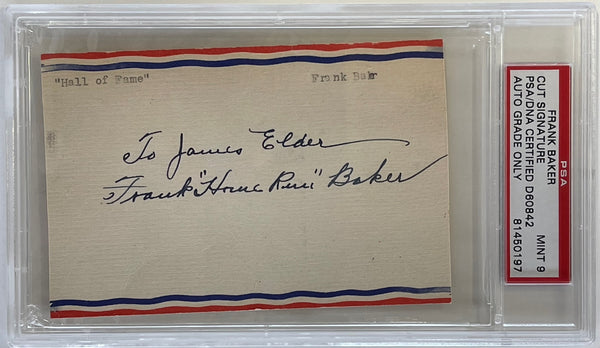 "Hall of Fame"
Frank Baker
To James Elder
Frank "Home Run" Baker
PSA
FRANK BAKER
CUT SIGNATURE MINT 9
PSA/DNA CERTIFIED D60842
AUTO GRADE ONLY 81450197